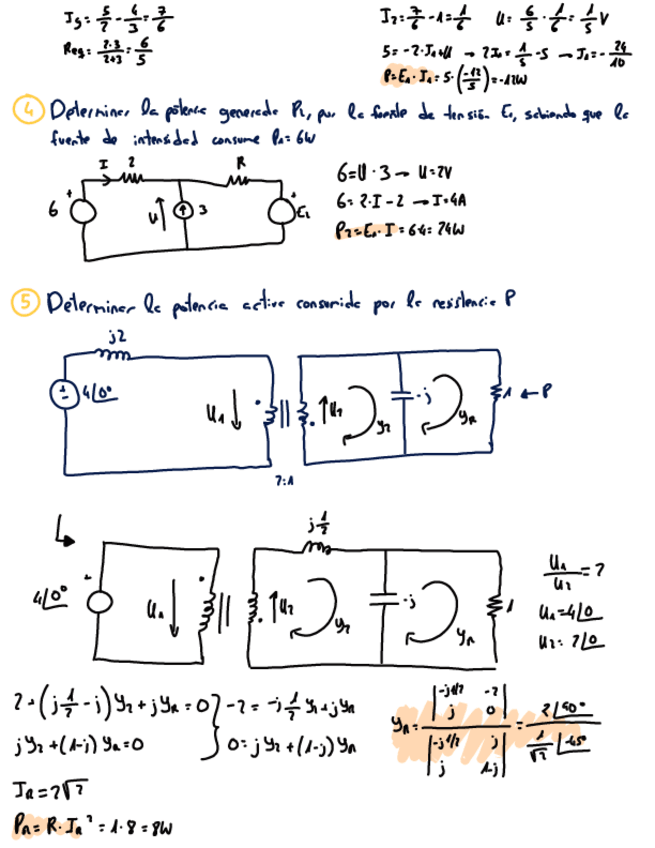 I₃ = 5/2 - 4/3 = 7/6
Req = 2·3/2+3 = 6/5
I₂ = 7/6 - 1 = 1/6 U = 6/5 · 1/6 = 1/5 V
5 = -2·I₁ + U → 2I₁ = 1/5 - 5 → I₁ = - 24/10
P = E₁·I₁ = 5·(-12/5) = -12W
4 Determiner la potencia generada P₂, por la fuente de tensión E₁, sabiendo que la
fuente de intensidad consume P₁ = 6W
I 2 R
6 U 3 E₂
6 = U·3 → U = 2V
6 = 2·I - 2 → I = 4A
P₂ = E₁·I = 6·4 = 24W
5 Determiner la potencia active consumida por la resistencia P
j2
4∠0° U₁ U₂ y₂ -j yₐ 1 ← P
2:1
j1/2
4∠0° U₁ U₂ y₂ -j yₐ 1
U₁/U₂ = 2
U₁ = 4∠0
U₂ = 2∠0
2 + (j1/2 - j) y₂ + j yₐ = 0
j y₂ + (1-j) yₐ = 0
-2 = -j 1/2 y₂ + j yₐ
0 = j y₂ + (1-j) yₐ
yₐ = |-j1/2 -2 j 0| / |-j1/2 j j 1-j| = 2∠90° / 1/√2 ∠45°
Iₐ = 2√2
Pₐ = R·Iₐ² = 1·8 = 8W